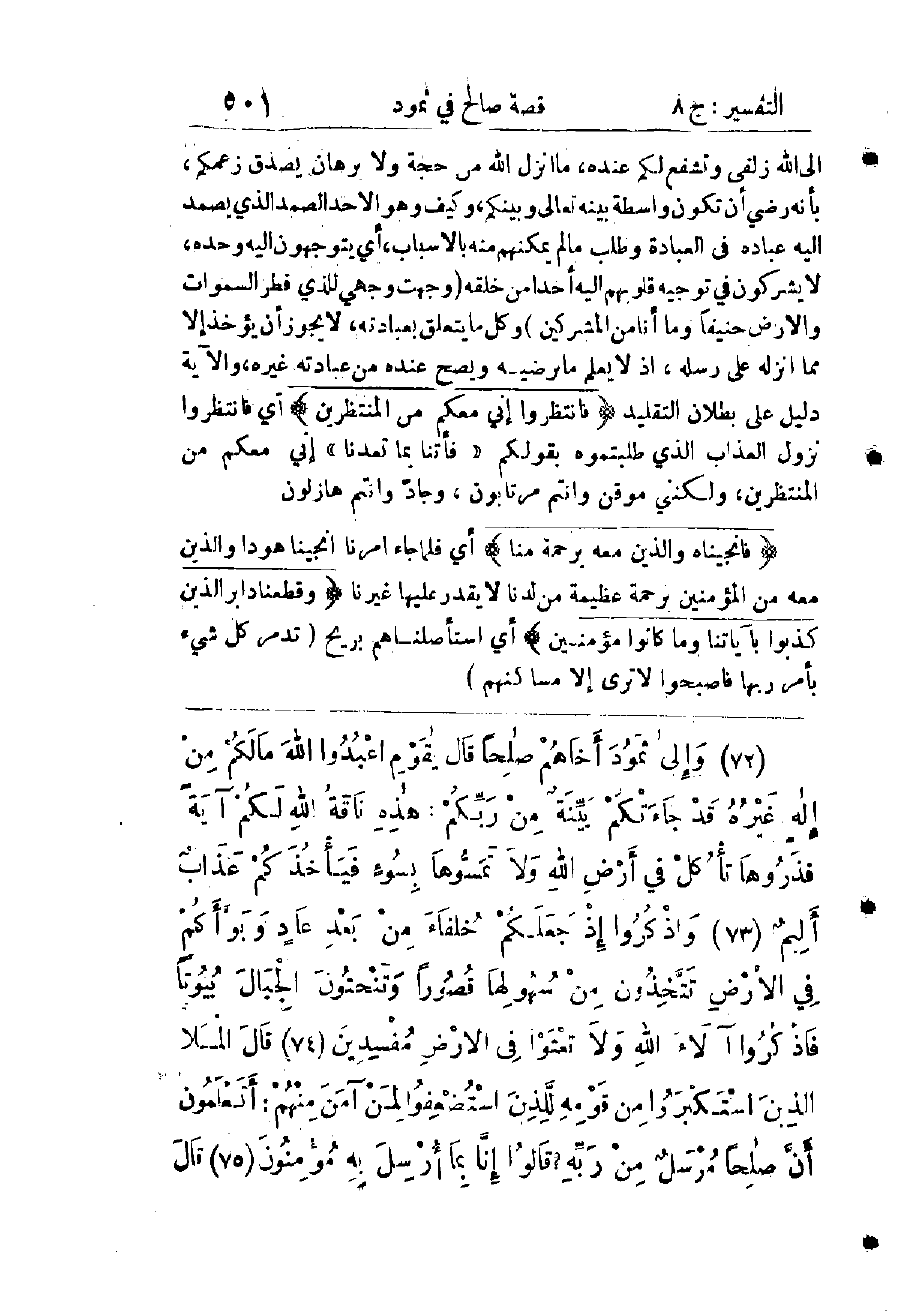 التفسير : ج ٨ قصة صالح في ثمود ٥٠١
الى الله زلفى وتشفع لكم عنده، ما انزل الله من حجة ولا برهان يصدق زعمكم،
بأنه رضي أن تكون واسطة بينه تعالى وبينكم، وكيف وهو الاحد الصمد الذي يصمد
اليه عباده في العبادة وطلب مالم يمكنهم منه بالاسباب، أي يتوجهون اليه وحده،
لا يشركون في توجيه قلوبهم اليه أحدا من خلقه (وجهت وجهي للذي فطر السموات
والارض حنيفاً وما أنا من المشركين ) وكل ما يتعلق بعبادته، لا يجوز أن يؤخذ إلا
مما انزله على رسله ، اذ لا يعلم ما يرضيه ويصح عنده من عبادته غيره، والآية
دليل على بطلان التقليد ﴿ فانتظروا إني معكم من المنتظرين ﴾ أي فانتظروا
نزول العذاب الذي طلبتموه بقولكم « فأتنا بما تعدنا » إني معكم من
المنتظرين، ولكنني موقن وانتم مرتابون ، وجادّ وانتم هازلون
﴿ فانجيناه والذين معه برحمة منا ﴾ أي فلما جاء امرنا انجينا هودا والذين
معه من المؤمنين برحمة عظيمة من لدنا لا يقدر عليها غيرنا ﴿ وقطعنا دابر الذين
كذبوا بآياتنا وما كانوا مؤمنين ﴾ أي استأصلناهم بريح ( تدمر كل شيء
بأمر ربها فاصبحوا لا ترى إلا مساكنهم )
(٧٢) وَإِلىٰ ثَمُودَ أَخَاهُمْ صٰلِحاً قَالَ يٰقَوْمِ اعْبُدُوا اللهَ مَالَكُمْ مِنْ
إِلٰهٍ غَيْرُهُ قَدْ جَاءَتْكُمْ بَيِّنَةٌ مِنْ رَبِّكُمْ : هٰذِهِ نَاقَةُ اللهِ لَكُمْ آيَةً
فَذَرُوهَا تَأْكُلْ فِي أَرْضِ اللهِ وَلاَ تَمَسُّوهَا بِسُوءٍ فَيَأْخُذَكُمْ عَذَابٌ
أَلِيمٌ (٧٣) وَاذْكُرُوا إِذْ جَعَلَكُمْ خُلَفَاءَ مِنْ بَعْدِ عَادٍ وَبَوَّأَكُمْ
فِي الأَرْضِ تَتَّخِذُونَ مِنْ سُهُولِهَا قُصُوراً وَتَنْحِتُونَ الْجِبَالَ بُيُوتاً
فَاذْكُرُوا آلَاءَ اللهِ وَلاَ تَعْثَوْا فِي الاَرْضِ مُفْسِدِينَ (٧٤) قَالَ الْمَلَا
الذِينَ اسْتَكْبَرُوا مِن قَوْمِهِ لِلَّذِينَ اسْتُضْعِفُوا لِمَنْ آمَنَ مِنْهُمْ : أَتَعْلَمُونَ
أَنَّ صٰلِحاً مُرْسَلٌ مِنْ رَبِّهِ؟ قَالُوا إِنَّا بِمَا أُرْسِلَ بِهِ مُؤْمِنُونَ (٧٥) قَالَ